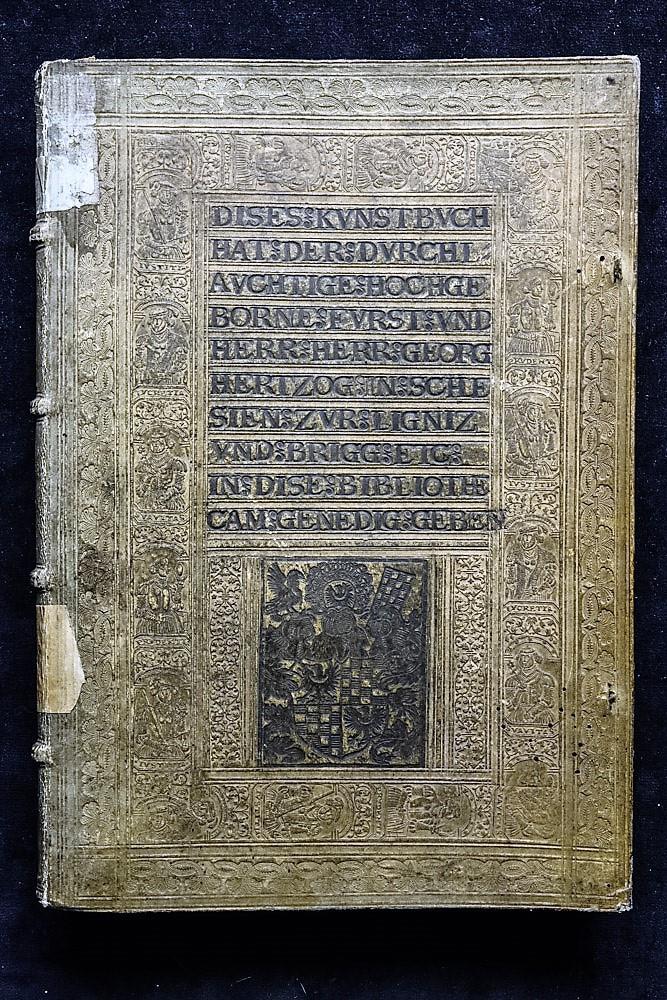 DISES:KVNSTBVCH
HAT:DER:DVRCHL
AVCHTIGE:HOCHGE
BORNE:FVRST:VND
HERR:HERR:GEORG
HERTZOG:IN:SCHE
SIEN:ZVR:LIGNIZ
VND:BRIGG:ETC:
IN:DISE:BIBLIOTHE
CAM:GENEDIG:GEBEN
IVSTITI